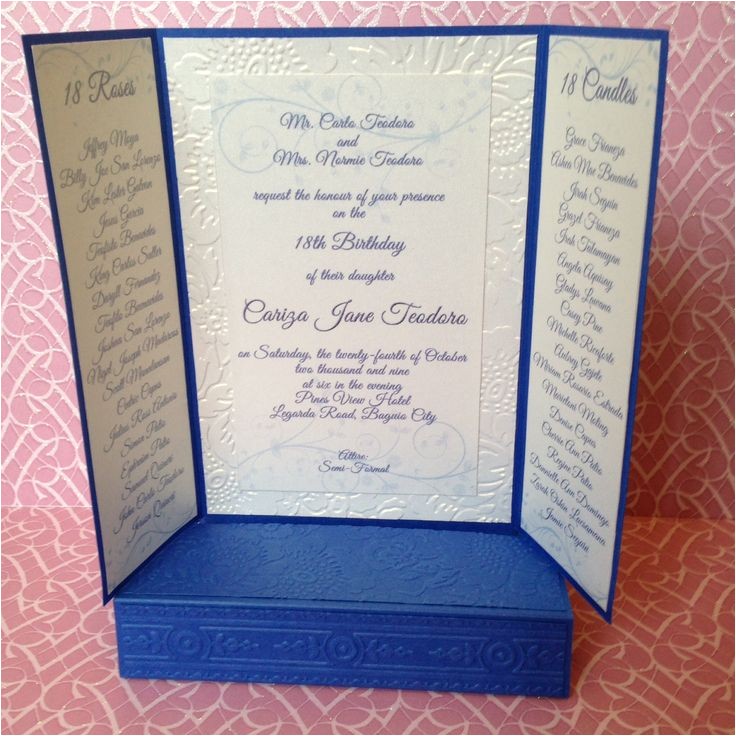 18 Roses
Jeffrey Moya
Billy Joe San Lorenzo
Kim Lester Galvan
Jesus Garcia
Teofisto Benavides
King Carlos Salter
Daryll Fernandez
Teofilo Benavides
Joshua San Lorenzo
Nigel Joseph
Cedric Capus
Julius Ross Antonio
Simon Patio
Ephraim Patio
Samuel
John Carlo Teodoro
Jerson
Mr. Carlo Teodoro
and
Mrs. Normie Teodoro
request the honour of your presence
on the
18th Birthday
of their daughter
Cariza Jane Teodoro
on Saturday, the twenty-fourth of October
two thousand and nine
at six in the evening
Pines View Hotel
Legarda Road, Baguio City
Attire:
Semi-Formal
18 Candles
Grace Frianeza
Ashea Mae Benavides
Jirah Seguin
Grazel Frianeza
Irah Talamayan
Angela Aquisay
Gladys
Casey Pine
Michelle Ricaforte
Aubrey Gayete
Miriam Rosario Estrada
Marieloni Molintas
Denise Capus
Cherrie Ann Patio
Regine Patio
Dannielle Ann Domingo
Zarah Orbin
Jamie Seguin